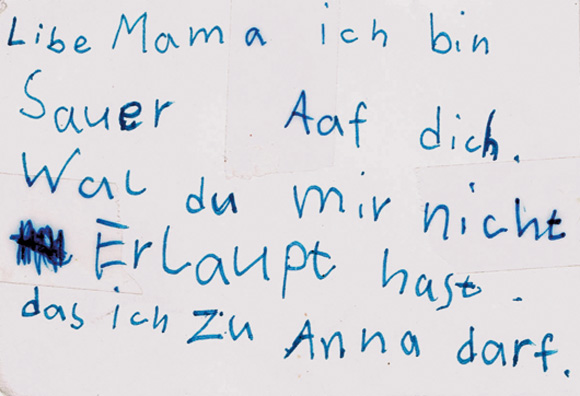 Libe Mama ich bin
Sauer Aaf dich.
Wal du mir nicht
Erlaupt hast.
das ich zu Anna darf.